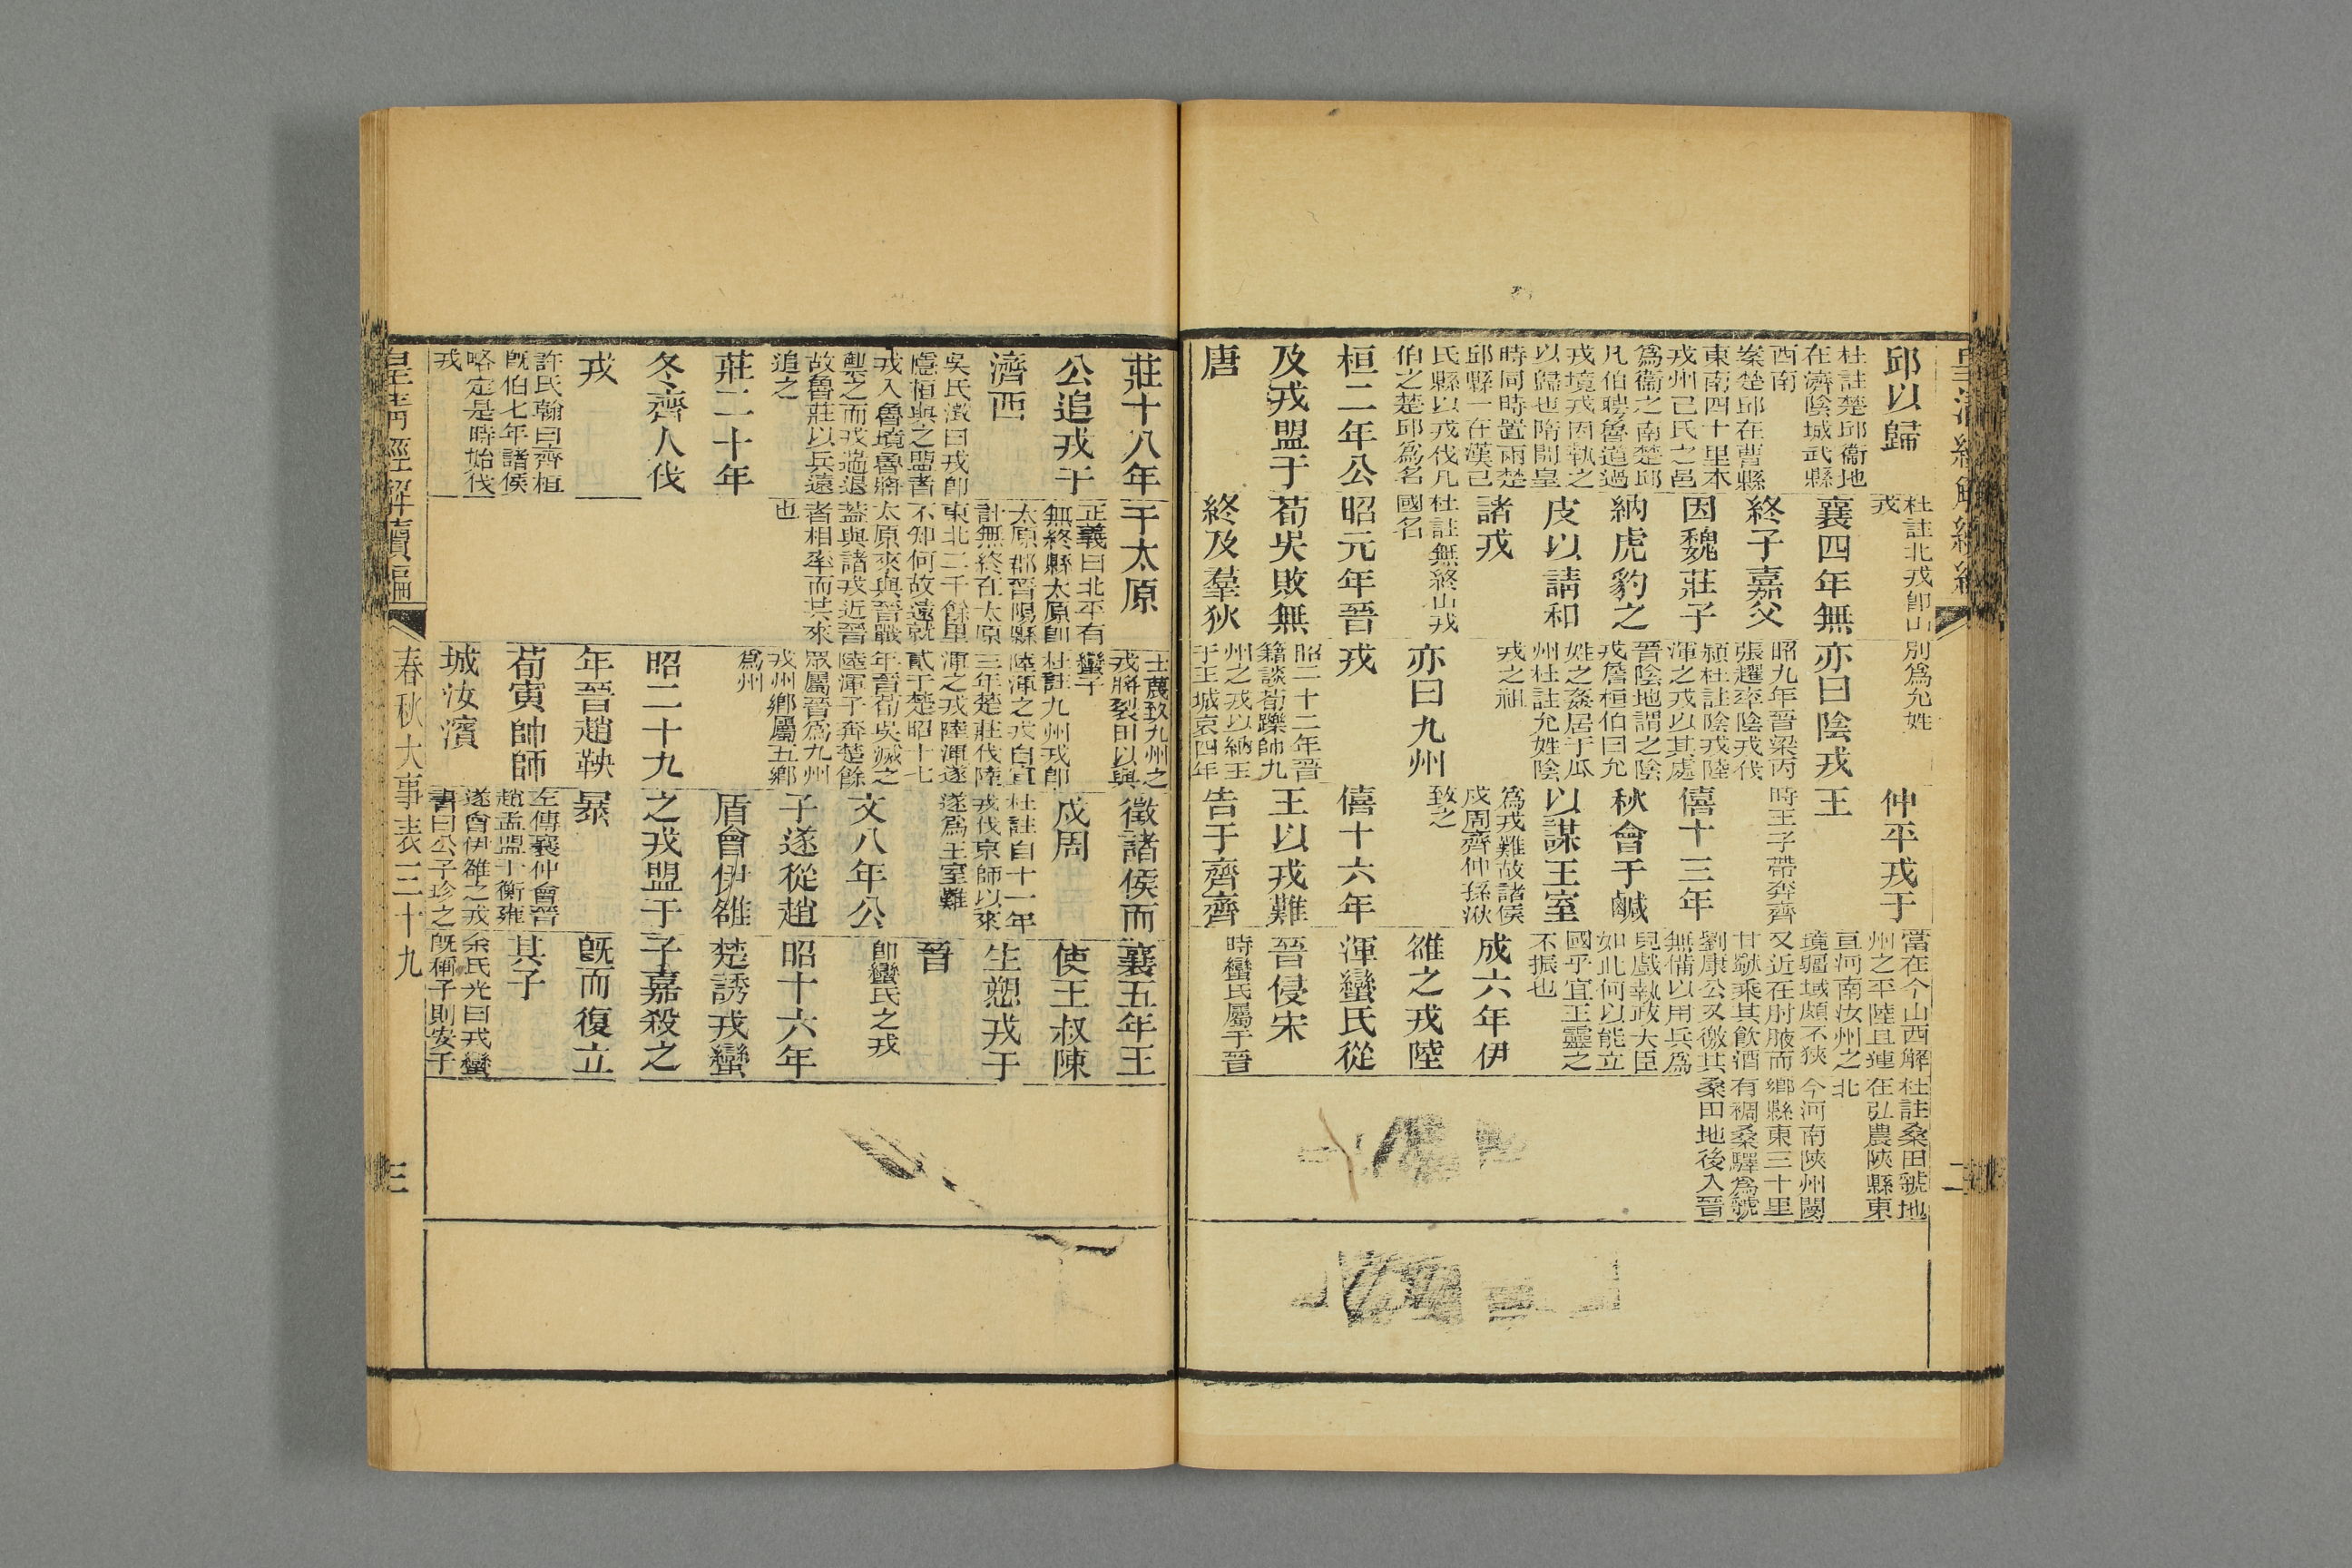 皇清經解續編
邱以歸
杜註楚邱衞地
在濟陰城武縣
西南
案楚邱在曹縣
東南四十里本
戎州己氏之邑
爲衞之南楚邱
凡伯聘魯道過
戎境戎因執之
以歸也隋開皇
時同時置兩楚
邱縣一在漢己
氏縣以戎伐凡
伯之楚邱爲名
桓二年公
及戎盟于
唐
杜註北戎卽山
戎
襄四年無
終子嘉父
因魏莊子
納虎豹之
皮以請和
諸戎
杜註無終山戎
國名
昭元年晉
荀吳敗無
終及羣狄
別爲允姓
亦曰陰戎
昭九年晉梁丙
張趯率陰戎伐
潁杜註陰戎陸
渾之戎以其處
晉陰地謂之陰
戎詹桓伯曰允
姓之姦居于瓜
州杜註允姓陰
戎之祖
亦曰九州
戎
昭二十二年晉
籍談荀躒帥九
州之戎以納王
于王城哀四年
仲平戎于
王
時王子帶奔齊
僖十三年
秋會于鹹
以謀王室
爲戎難故諸侯
戍周齊仲孫湫
致之
僖十六年
王以戎難
告于齊齊
當在今山西解
州之平陸且連
亘河南汝州之
境疆域頗不狹
又近在肘腋而
甘歜乘其飲酒
劉康公又徼其
無備以用兵爲
兒戲執政大臣
如此何以能立
國乎宜王靈之
不振也
成六年伊
雒之戎陸
渾蠻氏從
晉侵宋
時蠻氏屬于晉
杜註桑田虢地
在弘農陝縣東
北
今河南陝州閿
鄉縣東三十里
有稠桑驛爲虢
桑田地後入晉
二
莊十八年
公追戎于
濟西
吳氏澂曰戎卽
隱桓與之盟者
戎入魯境魯將
禦之而戎遁退
故魯莊以兵遠
追之
莊二十年
冬齊人伐
戎
許氏翰曰齊桓
旣伯七年諸侯
略定是時始伐
戎
于太原
正義曰北平有
無終縣太原卽
太原郡晉陽縣
計無終在太原
東北二千餘里
不知何故遠就
太原來與晉戰
蓋與諸戎近晉
者相率而共來
也
士蔑致九州之
戎將裂田以與
蠻子
杜註九州戎卽
陸渾之戎自宣
三年楚莊伐陸
渾之戎陸渾遂
貳于楚昭十七
年晉荀吳滅之
陸渾子奔楚餘
眾屬晉爲九州
戎州鄉屬五鄉
爲州
昭二十九
年晉趙鞅
荀寅帥師
城汝濱
徵諸侯而
戍周
杜註自十一年
戎伐京師以來
遂爲王室難
文八年公
子遂從趙
盾會伊雒
之戎盟于
暴
左傳襄仲會晉
趙孟盟于衡雍
遂會伊雒之戎
書曰公子珍之
襄五年王
使王叔陳
生愬戎于
晉
卽蠻氏之戎
昭十六年
楚誘戎蠻
子嘉殺之
旣而復立
其子
余氏光曰戎蠻
旣稱子則安子
皇清經解續編
春秋大事表三十九
三